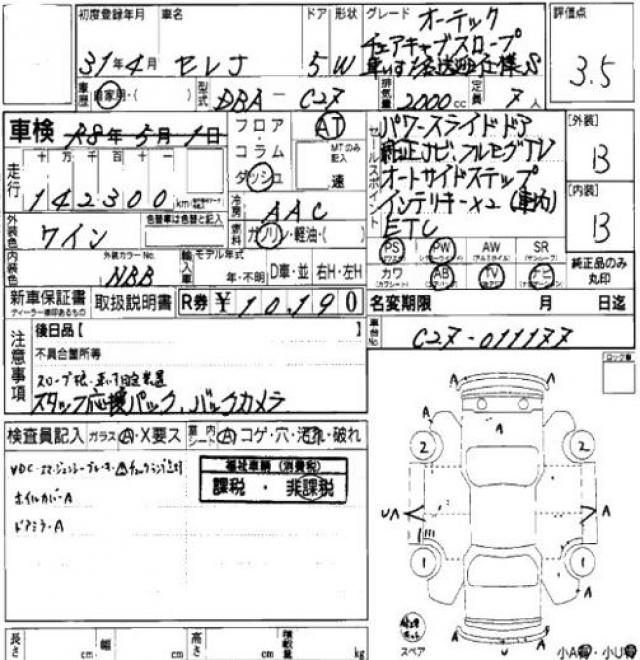 初度登録年月 車名 ドア 形状 グレード 評価点
31年4月 セレナ 5 W オーテック
チェアキャブスロープ
車いす1名送迎仕様 3.5
車歴 自家用・( ) 型式 DBA-C27 排気量 2000cc 定員 7人
車検 R8年5月1日 フロア・コラム・ダッシュ AT MTのみ記入 速
セールスポイント パワースライドドア
純正ナビ・フルセグTV
オートサイドステップ
インテリキー×2(車内)
ETC
[外装] B
[内装] B
走行 十万千百十一
142300 km
冷房 AAC
外装色 ワイン 色替車は色替と記入
燃料 ガソリン・軽油・( )
内装色 外装カラーNo. NBB
輸入車 モデル年式 年・不明 D車・並 右H・左H
PS PW AW SR
カワ AB TV ナビ
純正品のみ丸印
新車保証書 取扱説明書 R券 ¥10,190
ディーラー捺印あるもの
名変期限 月 日迄
車台No. C27-011177
注意事項 後日品【 】
不具合箇所等
スロープ板・車いす固定装置
スタッフ応援パック、バックカメラ
ロック車
検査員記入 ガラス A・X要ス 室内シート A コゲ・穴・汚れ・破れ
福祉車輌(消費税)
課税・非課税
ホイルカバーA
ドアミラーA
A A
A
2 2
UA A
1 1
A
A U A
スペア
長さ cm 幅 cm 高さ cm 積載量 kg